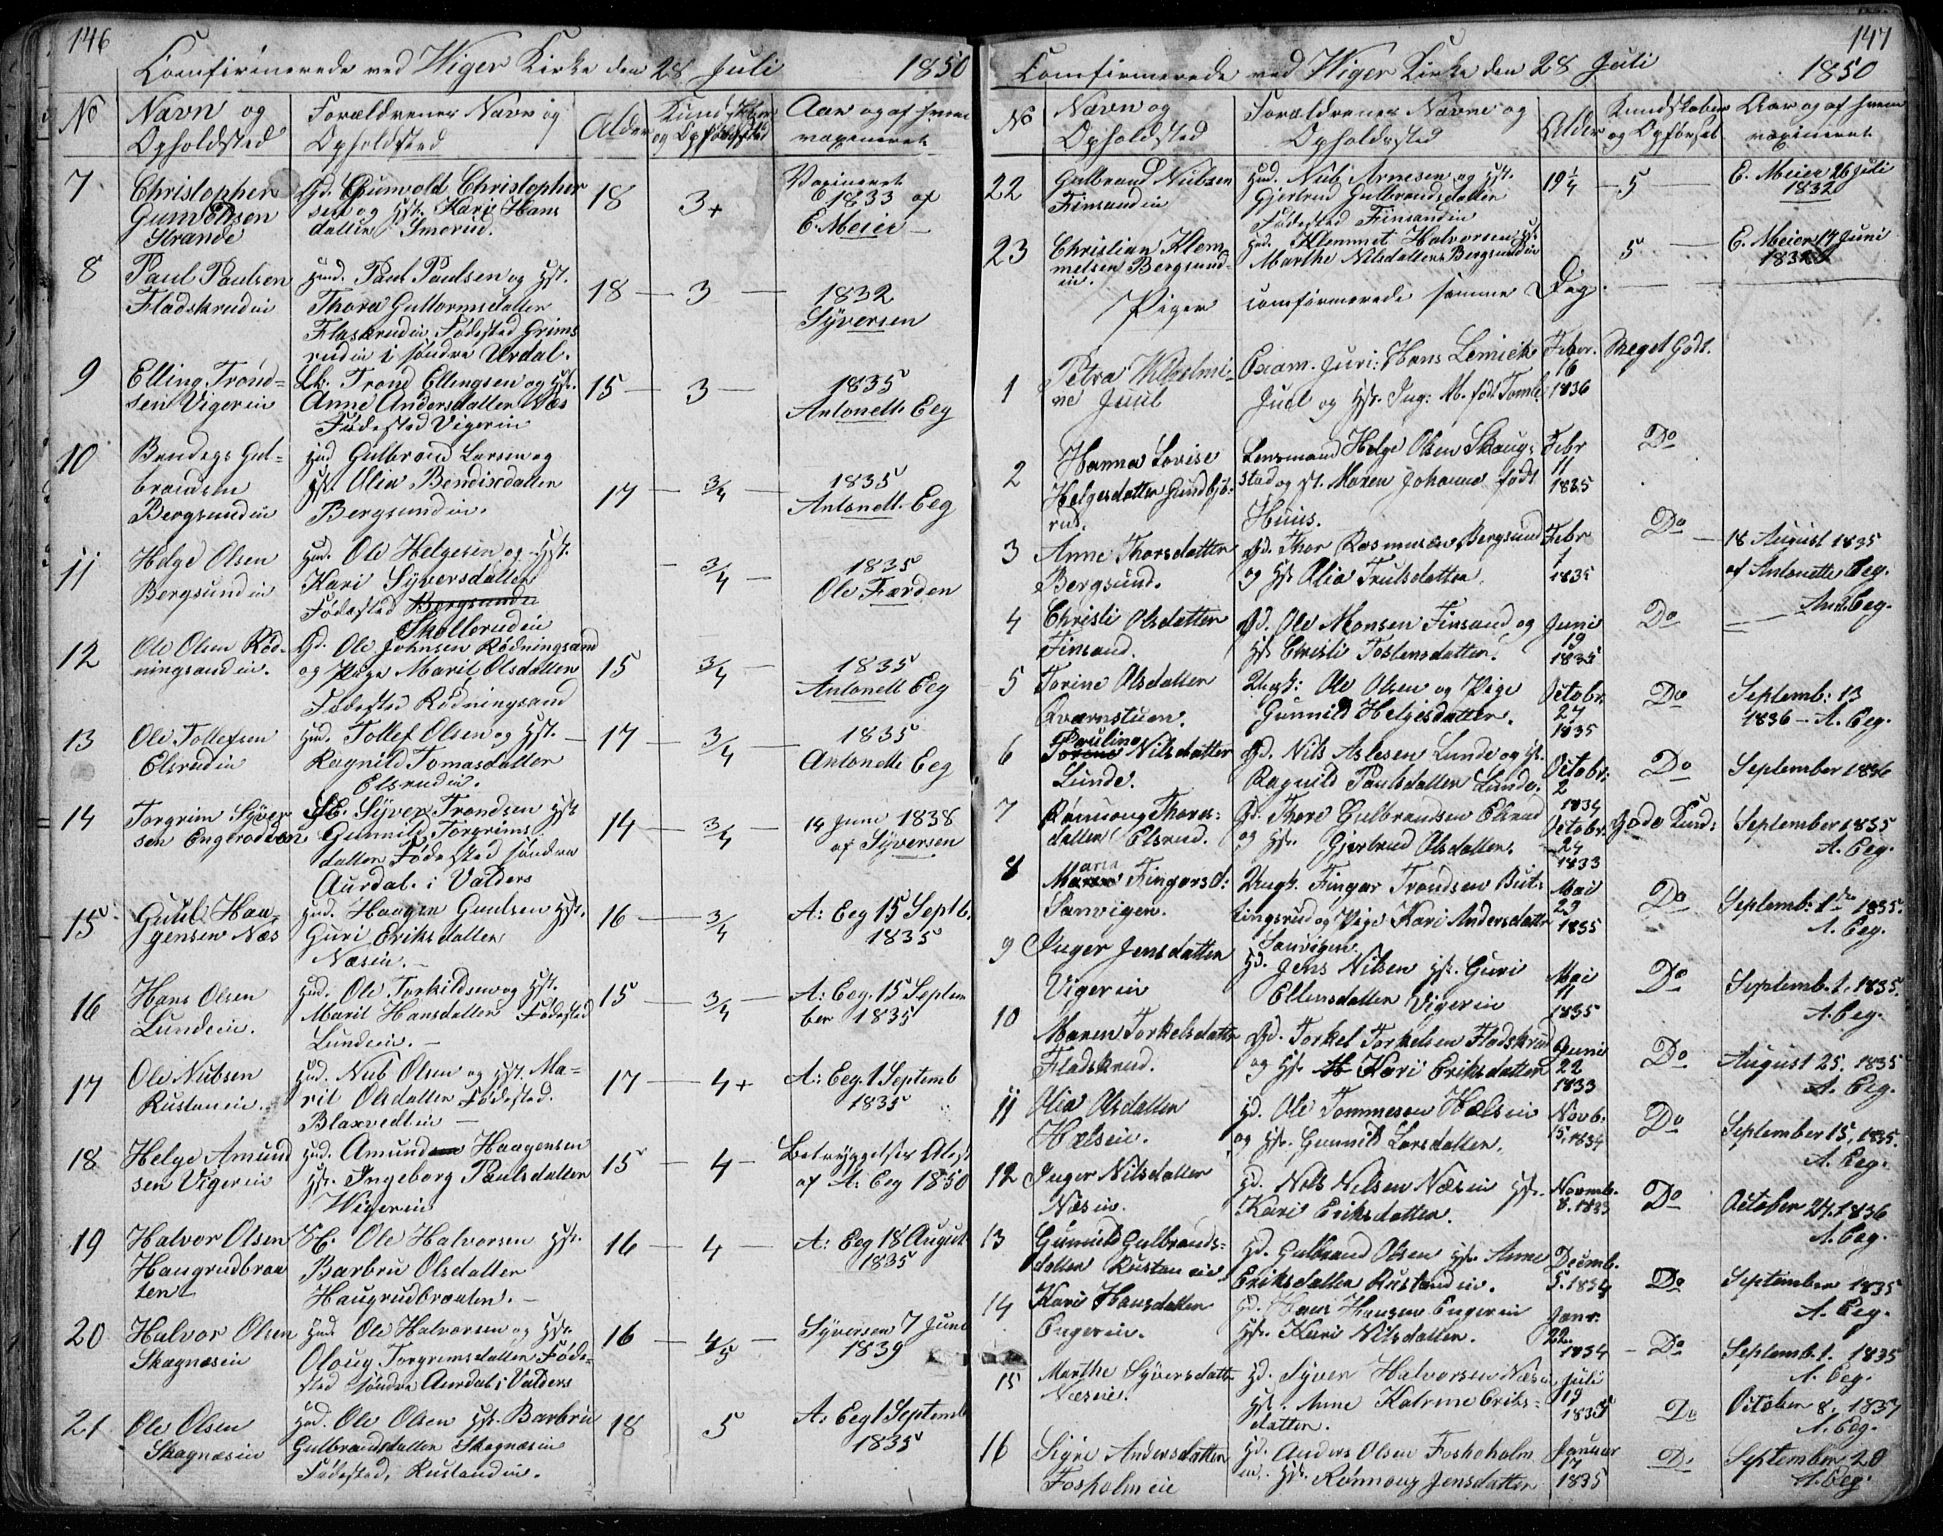 146
Comfirmerede ved Wiger Kirke den 28 Juli 1850
No
Navn og
Opholdsted
Forældrenes Navn og
Opholdsted
Alder
Kundskaber
og Opførsel
Aar og af hvem
vaxineret
7
Christopher
Strande
Gd. Gunvold Christopher
sen og Hst. Kari Hans
datter Smerud.
18
3+
Vaxineret
1833 af
E. Meier
8
Paul Paulsen
Fladskrudei
Huusmd. Paul Paulsen og Hst.
Thora Guttormsdatter
Fødested Grims
rudei i søndre Urdal.
18
3
1832
Syversen
9
Elling Trond-
sen Vigerei
Lk. Trond Ellingsen og Hst.
Anne Andersdatter Næs
Fødested Vigerei
15
3
1835
Antonett. Eeg
10
Bendegs Gul-
brandsen
Bergsundei
Hmd Gulbrand Larsen og
Hst. Olia Bendixdatter
Bergsundei.
17
3/4
1835
Antonett. Eeg
11
Helge Olsen
Bergsundei
Hmd. Ole Helgesen og Hst.
Kari Syversdatter
Fødested Bergsunde
Skollerudei
3/4
1835
Ole Færden
12
Ole Olsen Rød-
ningsandei.
Gd. Ole Johnsen Rødningsand
og Pige Marit Olsdatter
Fødested Rødningsand
15
3/4
1835
Antonett Eeg
13
Ole Tollefsen
Elsrudei
Hmd. Tollef Olsen og Hst.
Ragnild Tomasdatter
Elsrudei.
17
3/4
1835
Antonett Eeg
14
Torgrim Syver
sen Engerodden
Syver Trondsen Hst
Gunnild Torgrims
datter Fødested søndre
Aurdal i Valders
14
3/4
14 Juni 1838
af Syversen
15
Guul Haa-
gensen Næs
Hmd. Haagen Guulsen Hst.
Guri Eriksdatter
Næsei.
16
3/4
A: Eeg 15 Septb.
1835
16
Hans Olsen
Lundeie.
Hmd. Ole Torkildsen og Hst.
Marit Hansdatter Fødested
Lundeie.
15
3/4
A: Eeg. 15 Septem
ber 1835
17
Ole Nielsen
Rustaneie.
Hmd. Niels Olsen og Hst. Ma-
rit Olsdatter Fødested.
Blaxvedtei
17
4+
A: Eeg. 1 Septemb
1835
18
Helge Amund
sen Vigerei
Hmd. Amund Haagensen
Hst. Ingeborg Paulsdatter
Wigerei
15
4
Betryggelses Atest
af A: Eeg 1850
19
Halvor Olsen
Haugrudbraa
ten
Ole Halvorsen Hst.
Barbru Olsdatter
Haugrudbraaten.
16
4
A: Eeg 18 August
1835
20
Halvor Olsen
Skagnæsei
Hmd. Ole Halvorsen og Hst.
Oloug Torgrimsdatter Føde-
sted søndre Aurdal i Valders
16
4/5
Syversen 7 Juni
1839
21
Ole Olsen
Skagnæsei
Hmd. Ole Olsen Hst. Barbru
Gulbrandsdatter Skagnæsei
Fødested, Rustandei.
18
5
A: Eeg 1 Septemb
1835
147
Comfirmerede ved Wiger Kirke den 28 Juli 1850
No
Navn og
Opholdsted
Forældrenes Navne og
Opholdssted
Alder
Kundskaber
og Opførsel
Aar og af hvem
vaxineret
22
Gulbrand Nielsen
Finsandei
Hmd. Niels Arnesen og Hst.
Gjertrud Gulbrandsdatter
Fødested Finsandei
19 1/4
5
E. Meier 26 Juli
1832
23
Christian Klem-
metsen Bergsund-
ei.
Hmd. Klemmet Halvorsen Hst.
Marthe Nilsdatter Bergsundei
5
E. Meier 14 Juni
Piger comfirmerede samme Dag.
1
Petra Wilhelmi-
ne Juul
Exam. Juri: Hans Lemich
Juel og Hst. Ing: M. fød: Tomle.
Febr.
16
1836
Meget Godt.
2
Hanna Lovise
Helgesdatter Gundbjø-
rud.
Lensmand Helge Olsen Skaug-
stad og Hst. Maren Johanne født
Huus.
Febr
11
1835
Do
3
Anne Thorsdatter
Bergsund.
Gd. Thor Rasmusen Bergsund
og Hst Olia Trulsdatter.
Febr
1
1835
Do
18 August 1835
af Antonette Eeg.
4
Christi Olsdatter
Finsand.
Gd. Ole Monsen Finsand og
Hst Christi Tostensdatter.
Juni
19
1835
Do
Ant. Eeg.
5
Torine Olsdatter
Kværnstuen.
Ungk: Ole Olsen og Pige
Gunnild Helgesdatter.
Octobr
27
1835
Do
Septemb: 13
1836 - A. Eeg.
6
Pauline
Torine Nilsdatter
Lunde.
Gd. Nils Aslesen Lunde og Hst.
Ragnild Paulsdatter Lunde.
Octobr.
2
1834
Do
September 1836
7
Rønnoug Thores-
datter Elsrud.
Gd. Thore Gulbrandsen Elsrud
og Hst. Gjertrud Olsdatter.
Octobr.
24
1833
Gode Kund:
September 1835
A. Eeg.
8
Maria Fingarsd:
Sanvigen.
Ungk. Fingar Trondsen But-
tingsrud og Pige Kari Andersdatter
Sanvigen.
Mai
29
1835
Do
Septemb: 1ste 1835.
A. Eeg.
9
Inger Jensdatter
Vigerei
Gd. Jens Nilsen Hst. Guri
Ellensdatter Vigerei
Mai
11
1835
Do
Septemb. 1. 1835.
A. Eeg.
10
Maren Torkelsdatter
Fladskrud.
Gd. Torkel Torkelsen Fladskrud
og Hst. Kari Eriksdatter
Juni
22
1833
Do
August 25. 1835
A. Eeg.
11
Olia Olsdatter
Hælseie.
Hd. Ole Tommesen Hælseie
og Hst. Gunnild Larsdatter.
Novb.
15. 1834
Do
September 15, 1835.
A. Eeg.
12
Inger Nilsdatter
Næsei.
Hd. Nils Nilsen Næsei Hst.
Kari Eriksdatter.
Novmb.
8. 1833
Do
October 24. 1836
A. Eeg.
13
Gunnild Gulbrands-
datter Rustanei
Hd. Gulbrand Olsen Hst. Anne
Eriksdatter Rustandei.
Decemb.
5. 1834
Do
September 1835
A. Eeg.
14
Kari Hansdatter
Engerei.
Hd. Hans Hansen Engerei
Hst. Kari Nilsdatter.
Janr.
22.
1834
Do
Septemb. 1. 1835
A. Eeg.
15
Marthe Syversdatt.
Næseie.
Hd. Syver Halvorsen Næsei
Hst. Anne Katrine Eriks-
datter.
Juli
19
1835
Do
October 8. 1837
A. Eeg.
16
Sigre Andersdatter
Fosholmeie
Hd. Anders Olsen Foskeholm
ei. Hst. Rønnoug Jensdatter
Januar
17
1835
Do
September 20
A. Eeg.